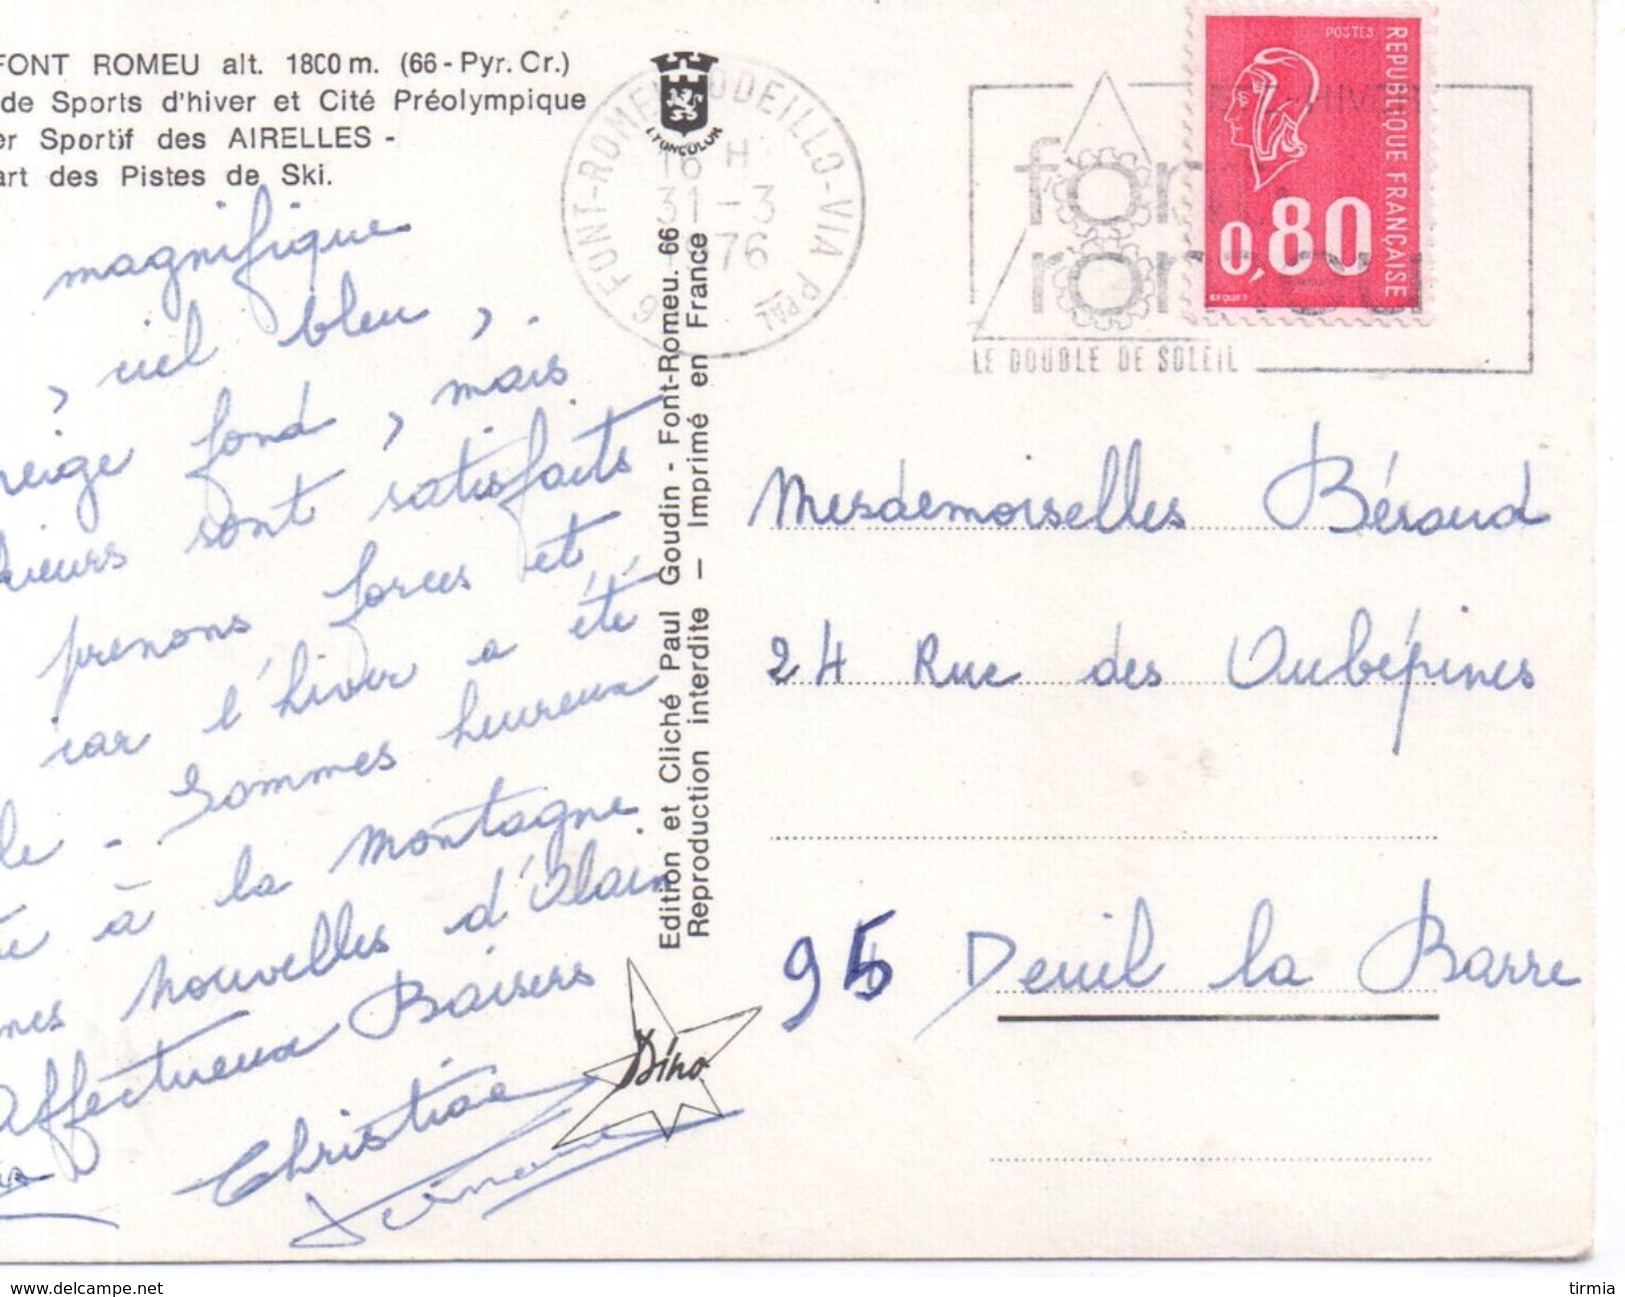 FONT ROMEU alt. 1800 m. (66 - Pyr. Cr.)
de Sports d'hiver et Cité Préolympique
er Sportif des AIRELLES -
art des Pistes de Ski.
magnifique
, ciel bleu,
neige fond, mais
sont satisfaits
prenons forces et
car l'hiver a été
le - Sommes heureux
à la montagne
nouvelles d'Alain
Affectueux Baisers
Christiane
LYONCOLOR
Edition et Cliché Paul Goudin - Font-Romeu. 66
Reproduction interdite — Imprimé en France
Dino
66 FONT-ROMEU-ODEILLO-VIA PPAL
16 H
31-3
1976
font
romeu
LE DOUBLE DE SOLEIL
POSTES
REPUBLIQUE FRANÇAISE
0,80
BEQUET
Mesdemoiselles Béraud
24 Rue des Aubépines
95 Deuil la Barre
tirmia